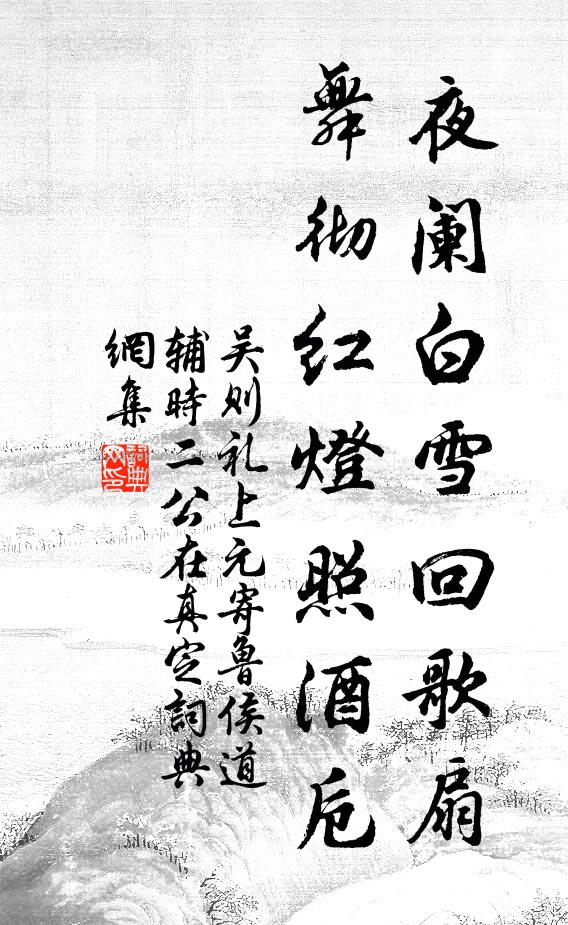 夜阑白雪回歌扇
舞彻红燈照酒卮
吴则礼上元寄鲁侯道
辅時二公在真定詞典
網集
詞典
网印